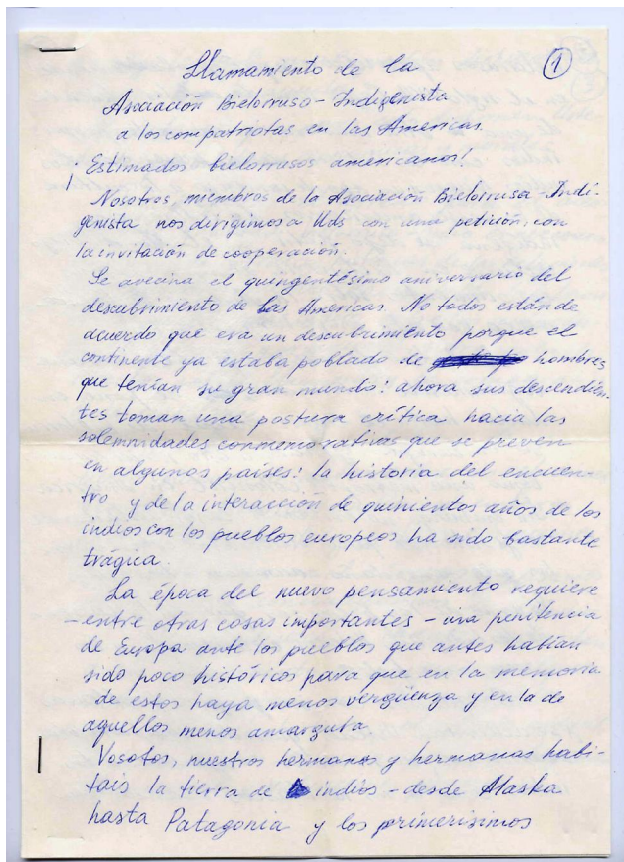 1
Llamamiento de la
Asociación Bielorruso-Indigenista
a los compatriotas en las Américas.
¡Estimados bielorrusos americanos!
Nosotros, miembros de la Asociación Bielorrusa-Indi-
genista nos dirigimos a Uds con una petición, con
la invitación de cooperación.
Se avecina el quingentésimo aniversario del
descubrimiento de las Américas. No todos están de
acuerdo que era un descubrimiento porque el
continente ya estaba poblado de hombres
que tenían su gran mundo: ahora sus descendien-
tes toman una postura crítica hacia las
solemnidades conmemorativas que se prevén
en algunos países: la historia del encuen-
tro y de la interacción de quinientos años de los
indios con los pueblos europeos ha sido bastante
trágica.
La época del nuevo pensamiento requiere
- entre otras cosas importantes - una penitencia
de Europa ante los pueblos que antes habían
sido poco históricos para que en la memoria
de estos haya menos vergüenza y en la de
aquellos menos amargura.
Vosotos, nuestros hermanos y hermanas habi-
táis la tierra de indios - desde Alaska
hasta Patagonia y los primerísimos